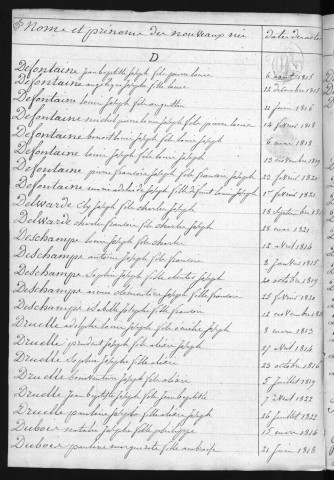 Noms et prénoms des nouveaux nés Dates des actes
D
Defontaine jean baptiste joseph fils pierre louis 6 aout 1815
Defontaine angelique joseph fille louis 12 décembre 1815
Defontaine louis joseph fils augustin 11 juin 1816
Defontaine michel pierre louis joseph fils pierre louis 14 février 1818
Defontaine benoit louis joseph fils louis joseph 6 mai 1818
Defontaine louis joseph fils louis joseph 13 novembre 1819
Defontaine pierre francois joseph fils francois joseph 22 février 1820
Defontaine marie adelaide joseph fille défunt louis joseph 1er février 1821
Delwarde joseph fils charles joseph 18 septembre
Delwarde charles francois fils charles joseph 28 mai 1821
Deschamps louis joseph fils charles 12 avril 1814
Deschamps antoine joseph fils francois 2 janvier 1815
Deschamps sophie joseph fille joseph 20 octobre 1819
Deschamps marie clémentine joseph fille francois 25 février 1820
Deschamps isabelle joseph fille francois 12 novembre
Druelle adolphe louis joseph fils joseph 8 mars 1813
Druelle joseph fils joseph 27 avril 1814
Druelle sophie joseph fille 23 octobre 1816
Druelle bonaventure joseph 5 juillet 1819
Druelle jean baptiste joseph fils jean baptiste 7 avril 1822
Druelle pauline joseph fille joseph 26 juillet 1822
Dubois natalie joseph fille philippe 15 mars 1814
Dubois pauline marguerite fille ambroise 21 juin 1818